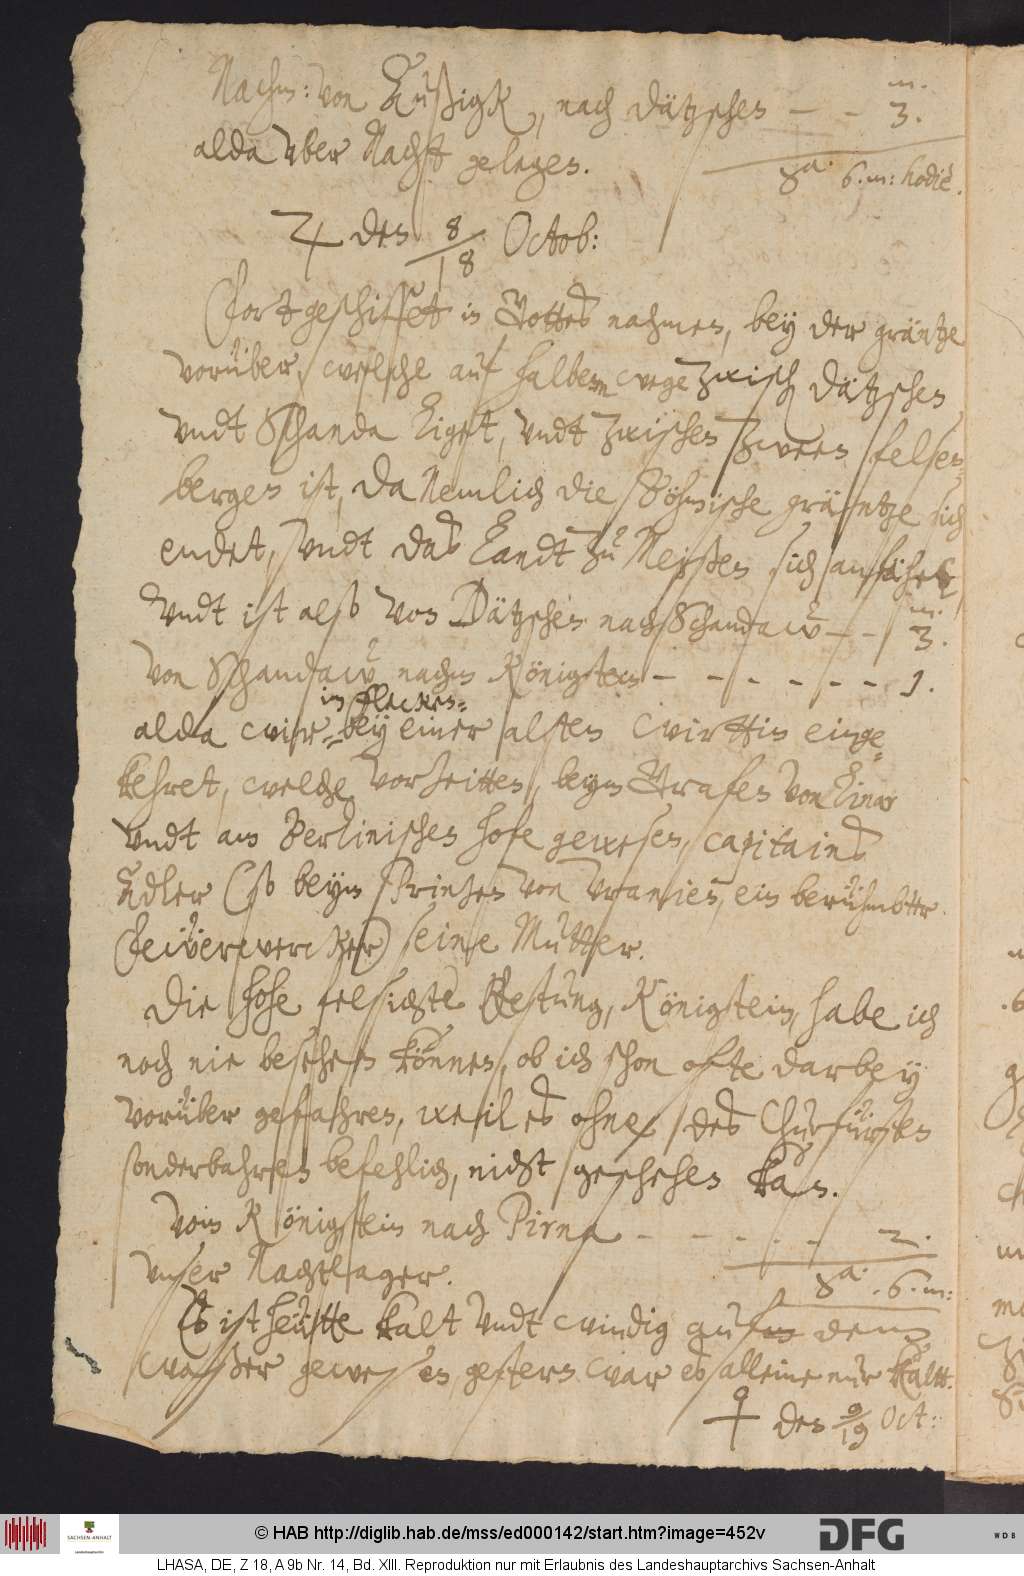 Nachm: von Außigk, nach Dätzschen — - 3. m.
alda vber Nacht gelegen. Sa. 6. m: hodie.
♃ den 8/18 Octob:
Fortgeschiffet in Gottes nahmen, bey der gräntze
vorüber, welche auf halbem wege zwisch Dätzschen
vndt Schanda liegt, vndt zwischen zween felsen-
bergen ist, da nemlich die Böhmische gräntze sich
endet, vndt das Landt zu Meißen sich anfähet
vndt ist alß von Dätzschen nach Schandaw - - 3. m.
von Schandaw nachm Königstein - - - - - - 1.
alda wir im flecken- bey einer alten wirttin einge-
kehret, welche vorzeitten, beym Grafen von Linar
vndt am Berlinischen hofe gewesen, capitains
Adler (so beym Printzen von Vranien, ein berühmbter
Feüerwercker) seine Mutter.
Die hohe felsichte Festung, Königstein, habe ich
noch nie besehen können, ob ich schon ofte darbey
vorüber gefahren, weil es ohne des Churfürsten
sonderbahren befehlich, nicht geschehen kan.
Vom Königstein nach Pirna - - - - - 2.
vnser Nachtlager. Sa. 6. m:
Es ist heütte kalt vndt windig auf dem
waßer gewesen, gestern war es alleine nur kaltt.
♀ den 9/19 Oct:
© HAB http://diglib.hab.de/mss/ed000142/start.htm?image=452v
SACHSEN-ANHALT
Landeshauptarchiv
DFG
WDB
LHASA, DE, Z 18, A 9b Nr. 14, Bd. XIII. Reproduktion nur mit Erlaubnis des Landeshauptarchivs Sachsen-Anhalt